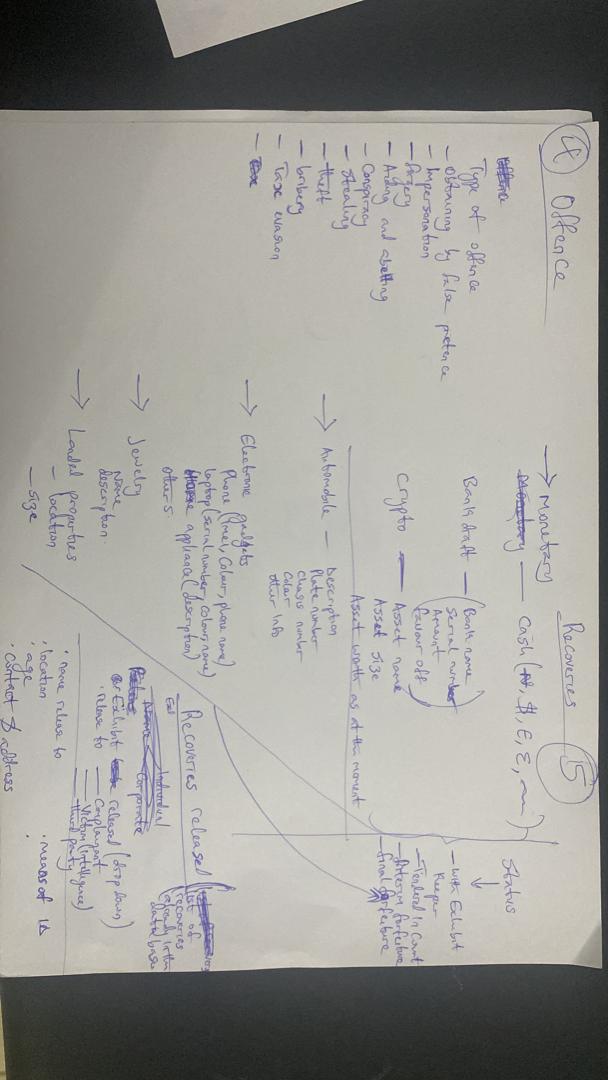 4 Offence
Type of offence
- Obtaining by false pretence
- Impersonation
- forgery
- Aiding and abetting
- Conspiracy
- Stealing
- theft
- bribery
- Tax evasion
Recoveries 5
→ Monetary
— Cash (₦, $, £, €, ~)
Bank draft — (Bank name
Serial number
Amount
favour off)
Crypto — Asset name
Asset size
Asset worth as at this moment
→ Automobile — Description
Plate number
Chasis number
Colour
other Info
→ Electronic gadgets
Phone (Imei, Colour, phone name)
laptop (serial number, colour, name)
appliance (description)
others.
→ Jewelry
Name
description.
→ Landed properties
— location
— size
Status
↓
- with Exhibit
Keeper
- Tendered in Court
- Interim forfeiture
- final forfeiture
Recoveries released
(list of
recoveries
already in the
data base
Exhibit released (drop down)
• release to — Complainant
— Victim (intelligence)
— third party
• name release to
• location
• age
• contact $ address
• means of ID